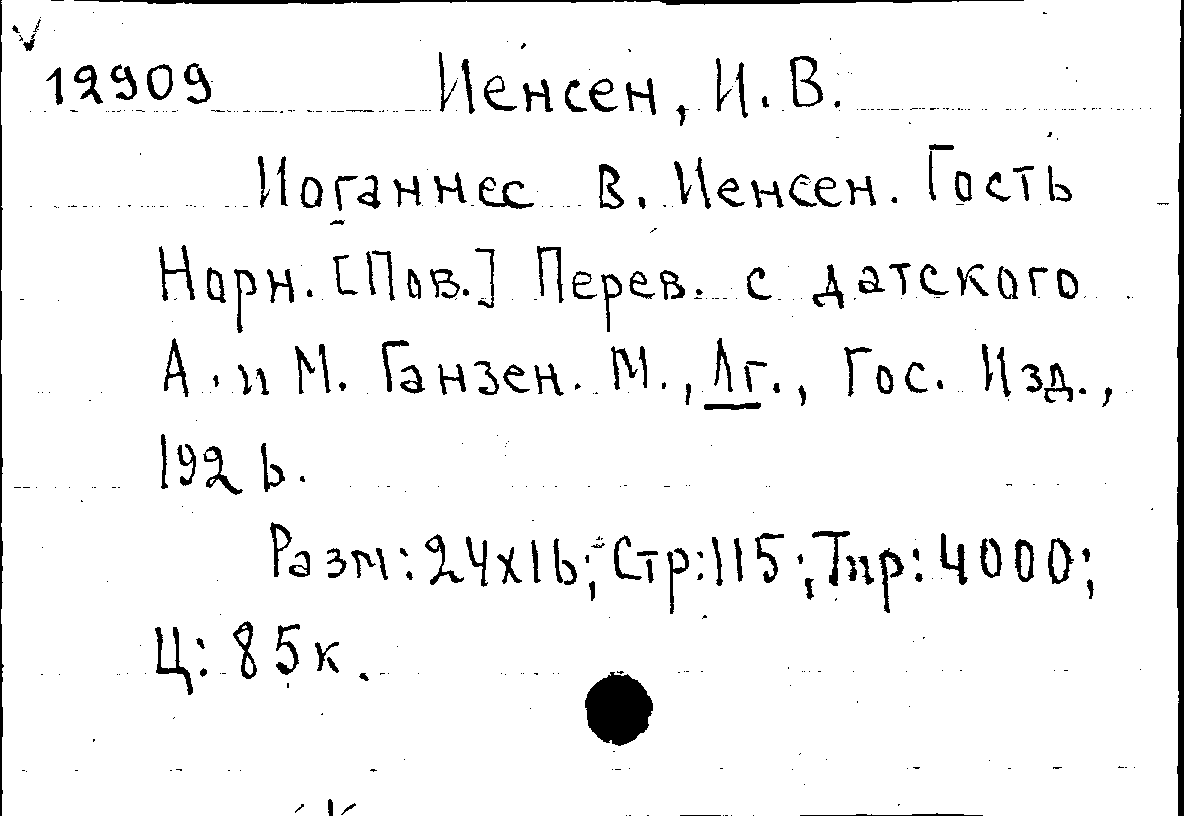 12909 Иенсен, И. В.
Иоганнес В. Иенсен. Гость
Норн. [Пов.] Перев. с датского
А. и М. Ганзен. М., Лг., Гос. Изд.,
1926.
Разм: 24х16; Стр: 115; Тир: 4000;
Ц: 85к.